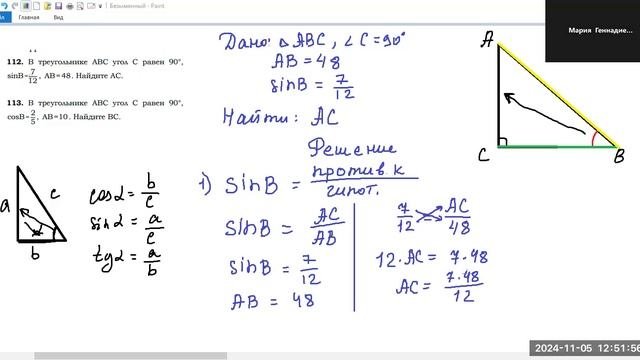 Безымянный - Paint
Главная Вид
112. В треугольнике ABC угол C равен 90°,
sinB=7/12, AB=48. Найдите AC.
113. В треугольнике ABC угол C равен 90°,
cosB=2/5, AB=10. Найдите BC.
Дано: △ABC, ∠C=90°
AB = 48
sinB = 7/12
Найти: AC
Решение
1) sinB = против.к / гипот.
sinB = AC/AB
sinB = 7/12
AB = 48
7/12 = AC/48
12·AC = 7·48
AC = 7·48/12
a c b
cosα = b/c
sinα = a/c
tgα = a/b
A
C B
Мария Геннадие...
2024-11-05 12:51:56